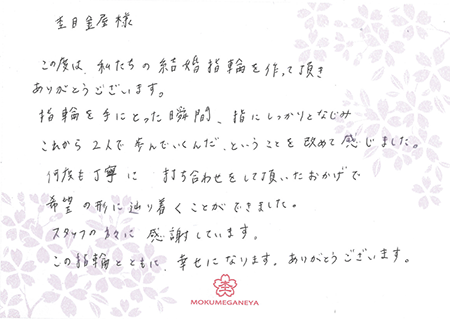 杢目金屋様
この度は、私たちの結婚指輪を作って頂き
ありがとうございます。
指輪を手にとった瞬間、指にしっかりとなじみ
これから2人で歩んでいくんだ、ということを改めて感じました。
何度も丁寧に 打ち合わせをして頂いたおかげで
希望の形に辿り着くことができました。
スタッフの方々に 感謝しています。
この指輪とともに、幸せになります。ありがとうございます。
MOKUMEGANEYA